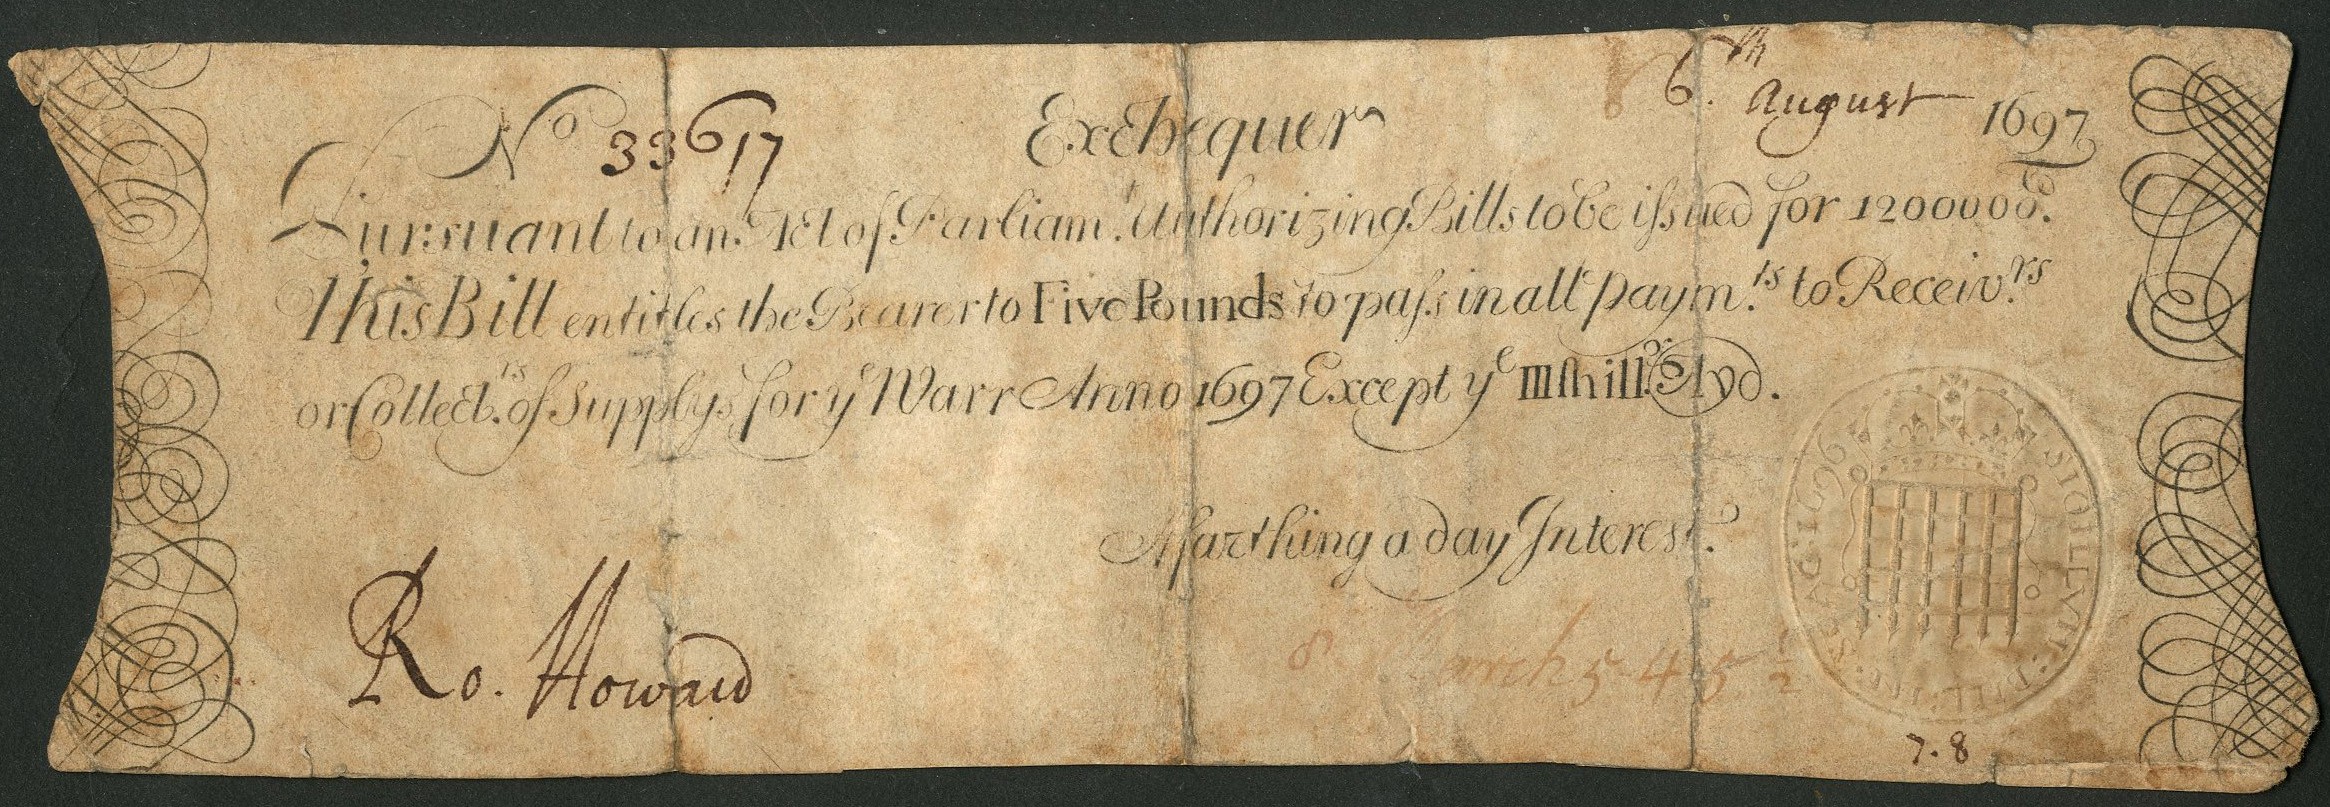 Nº 33617 Exchequer 6.th August 1697
Pursuant to an Act of Parliam.t Authorizing Bills to be issued for 1200000.
This Bill entitles the Bearer to Five Pounds to pass in all paym.ts to Receiv.rs
or Collect.rs of Supplys for ye Warr Anno 1697 Except ye III shill.s Ayd.
A farthing a day Interest.
Ro. Howard
8 March 5-4-5 1/2
1696 SIGILLVM
7.8